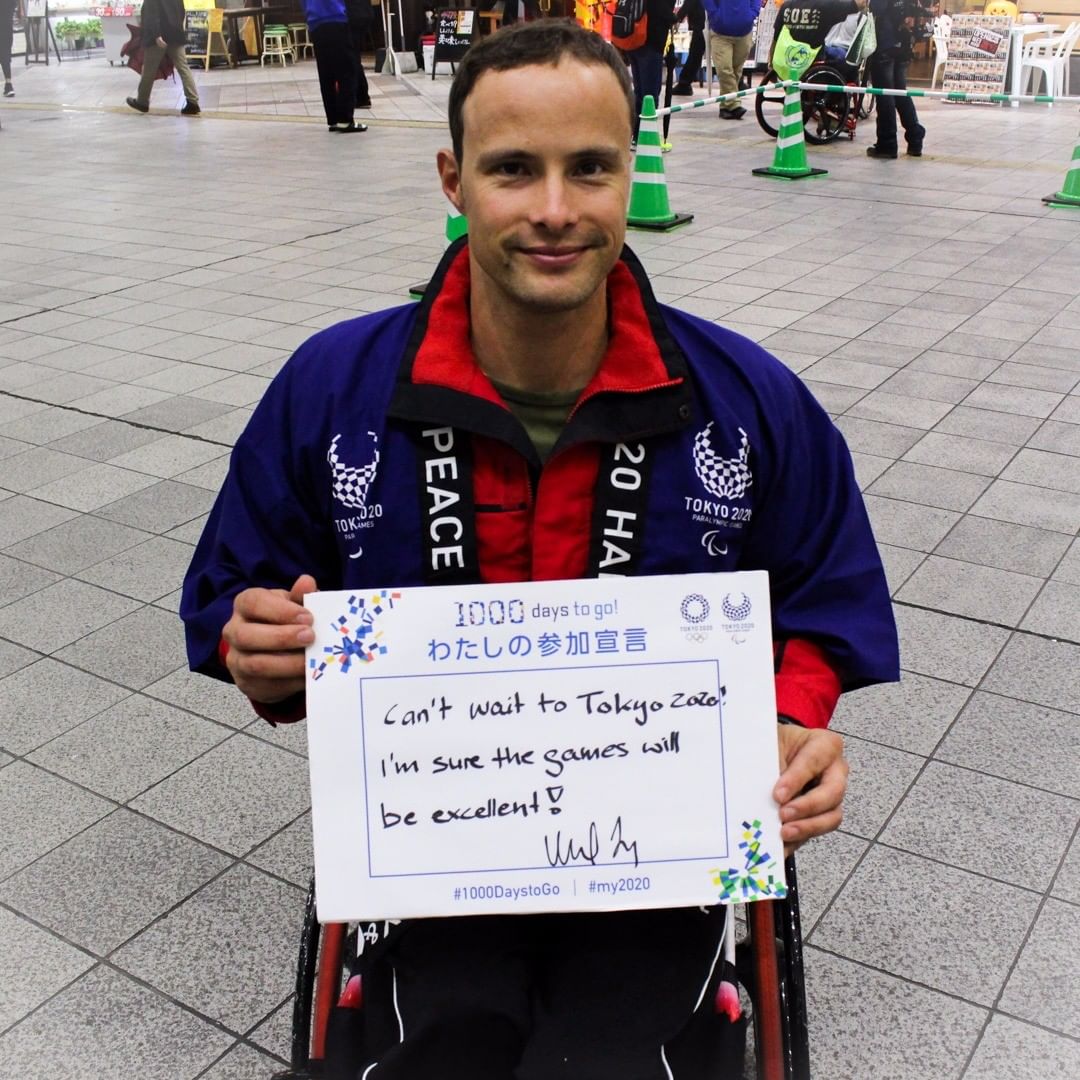 SOE
PEACE
20 HA
TOKYO 2020
PARALYMPIC GAMES
1000 days to go!
わたしの参加宣言
TOKYO 2020
TOKYO 2020
Can't wait to Tokyo 2020!
I'm sure the games will
be excellent!
#1000DaystoGo | #my2020